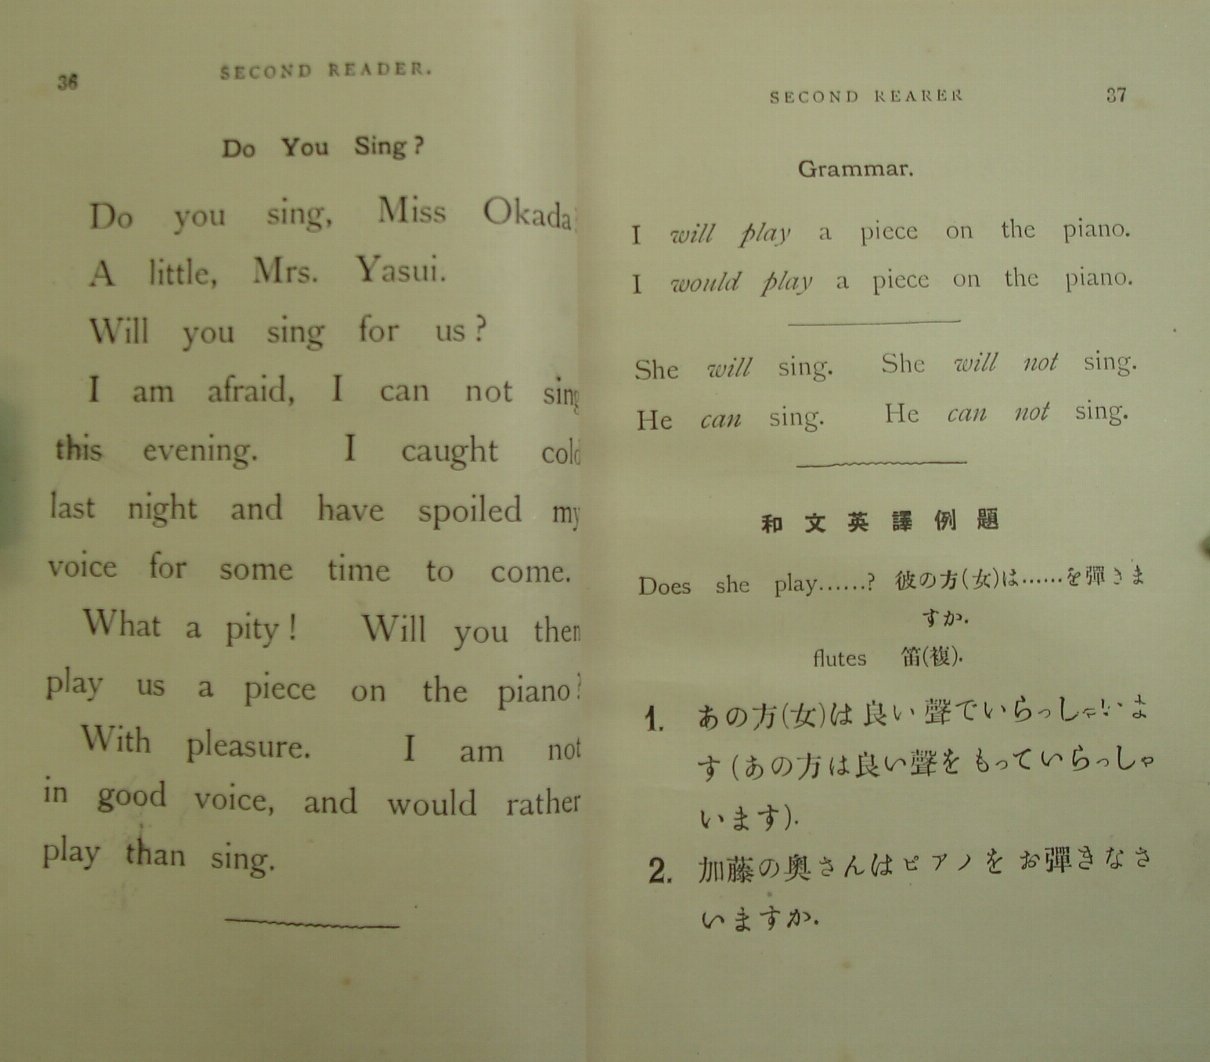 36
SECOND READER.
Do You Sing?
Do you sing, Miss Okada
A little, Mrs. Yasui.
Will you sing for us?
I am afraid, I can not sing
this evening. I caught cold
last night and have spoiled my
voice for some time to come.
What a pity! Will you then
play us a piece on the piano?
With pleasure. I am not
in good voice, and would rather
play than sing.
SECOND REARER
37
Grammar.
I will play a piece on the piano.
I would play a piece on the piano.
She will sing. She will not sing.
He can sing. He can not sing.
和文英譯例題
Does she play......? 彼の方(女)は......を彈きま
すか.
flutes 笛(複).
1. あの方(女)は良い聲でいらっしゃいま
す(あの方は良い聲をもっていらっしゃ
います).
2. 加藤の奥さんはピアノをお彈きなさ
いますか.